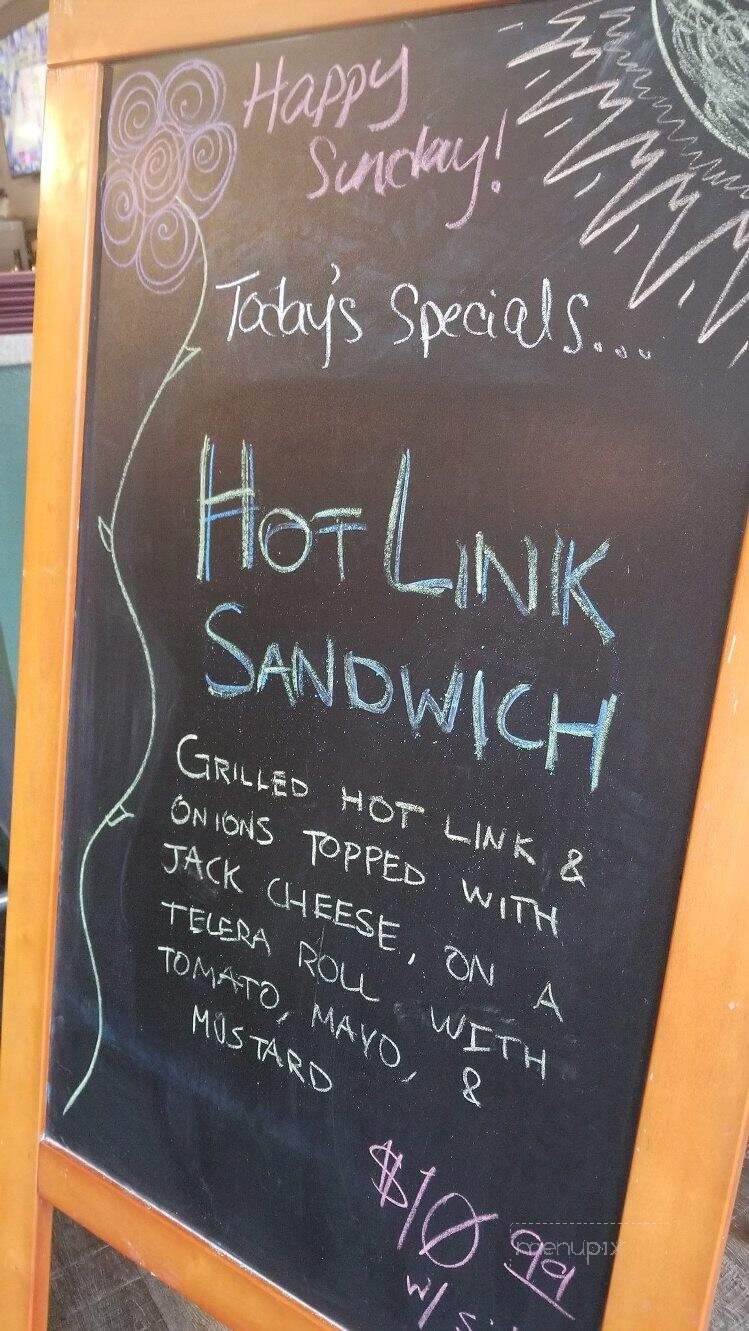 Happy
Sunday!
Today's Specials...
HOT LINK
SANDWICH
GRILLED HOT LINK &
ONIONS TOPPED WITH
JACK CHEESE, ON A
TELERA ROLL WITH
TOMATO, MAYO, &
MUSTARD
$10 99
menupix
w/